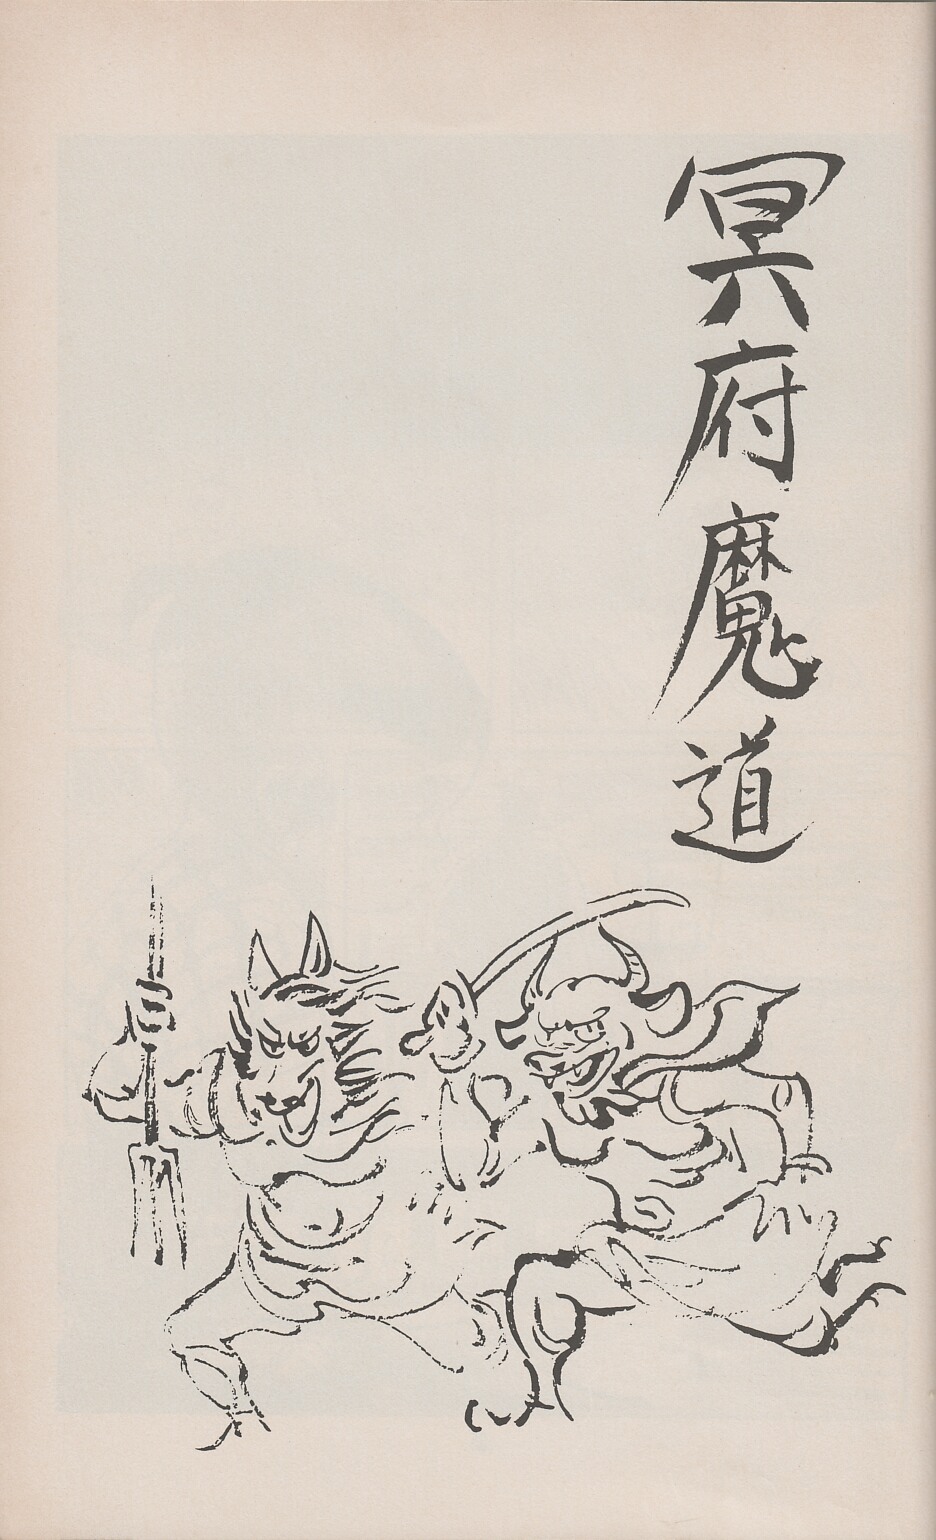 冥府魔道